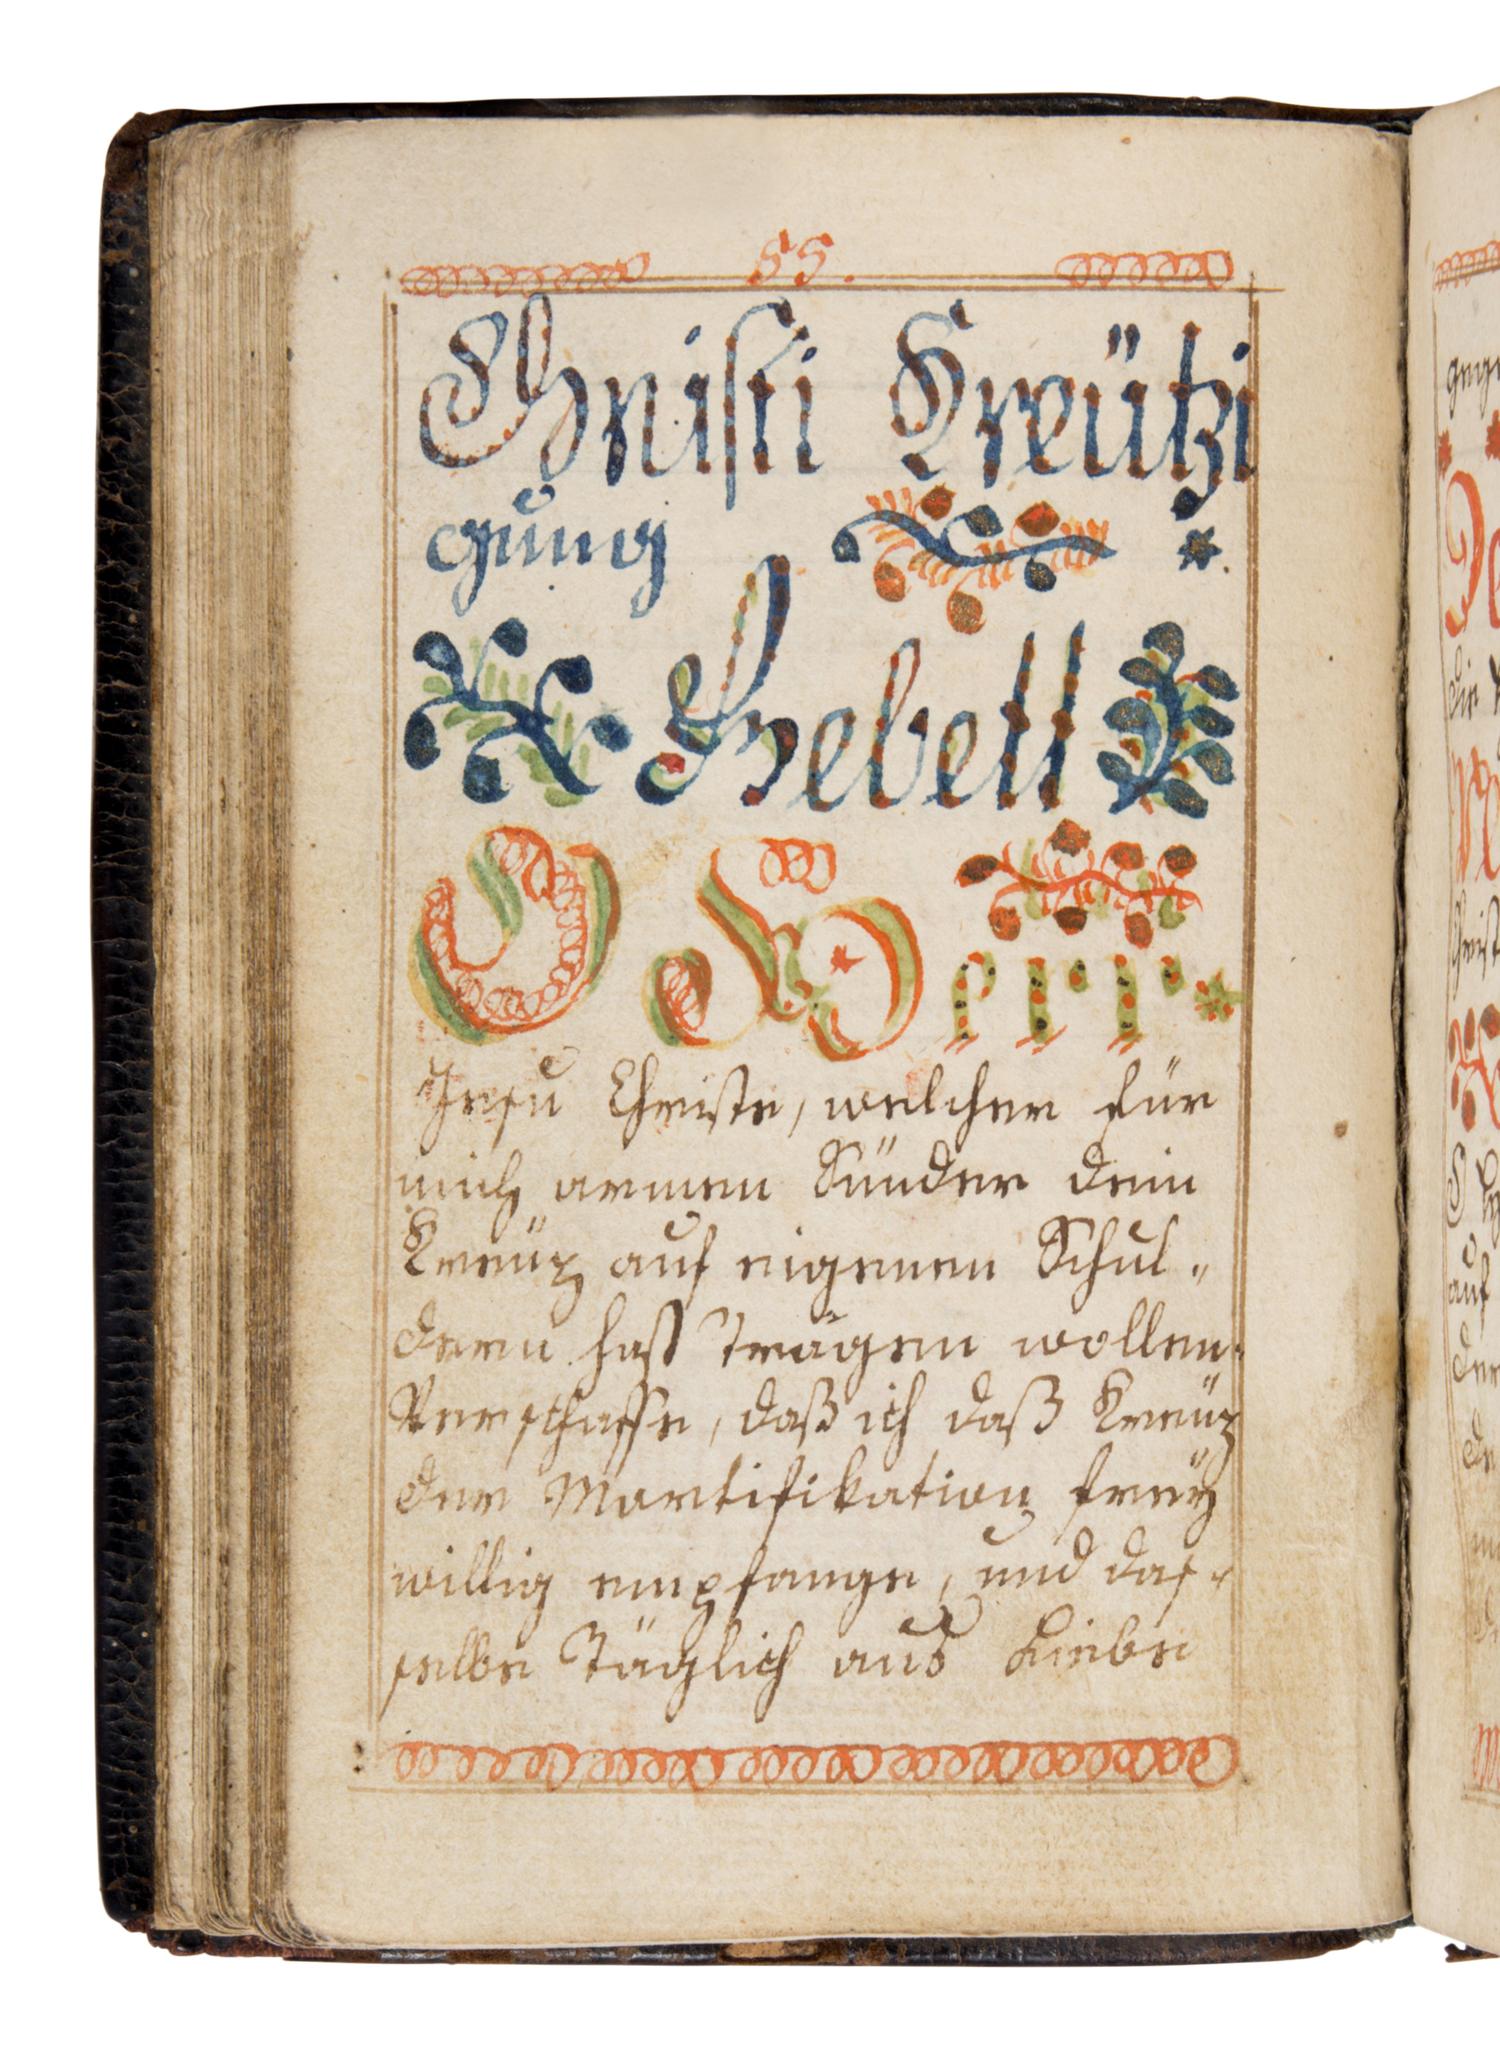 55.
Christi Kreützi
gung
Gebett
O HErr
Jesu Christe, welcher für
mich armen Sünder dein
Kreütz auf eigenen Schul-
deren hast tragen wollen.
Verschaffe, daß ich daß Kreütz
der Mortifikation freÿ
willig empfange, und das-
selbe Täglich aus Liebe
auf